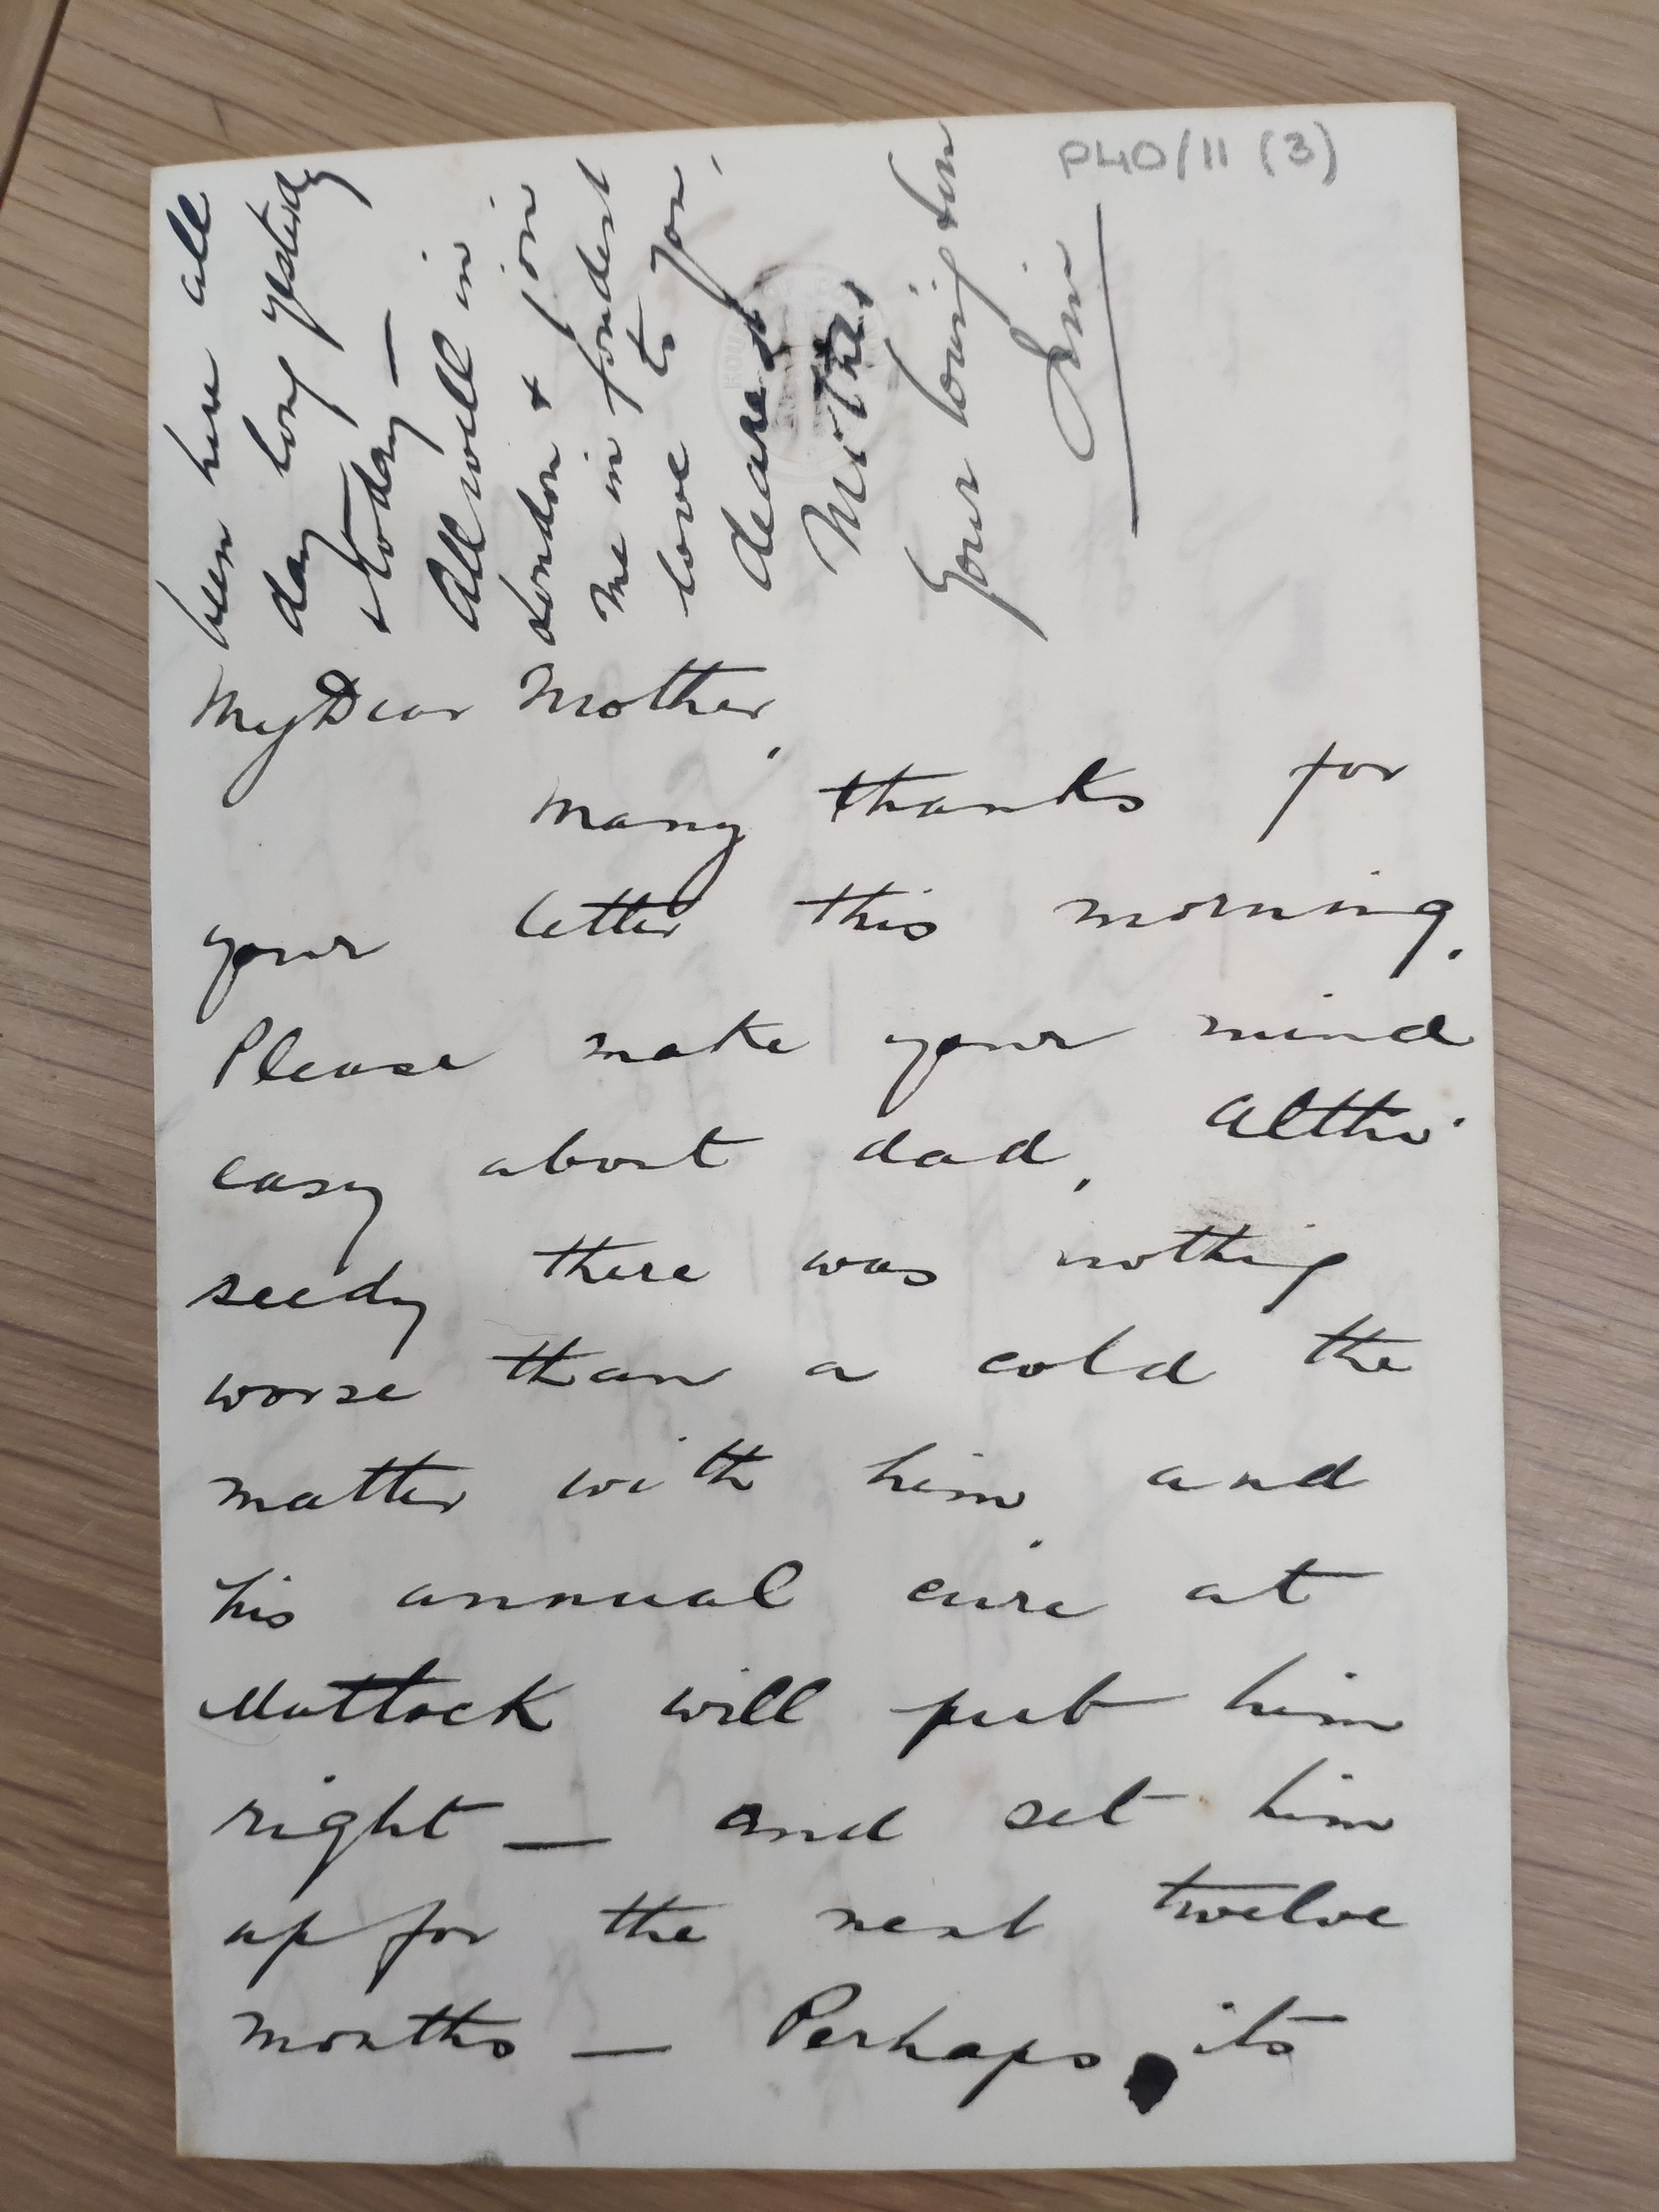 P40/11 (3)
been here all
day long yesterday
& today —
All well in
London & join
me in fondest
love to you,
dearest
Mother
Your loving son
Jim
My Dear Mother,
Many thanks for
your letter this morning.
Please make your mind
easy about dad, Altho'
seedy there was nothing
worse than a cold the
matter with him, and
his annual cure at
Matlock will put him
right — and set him
up for the next twelve
months — Perhaps its